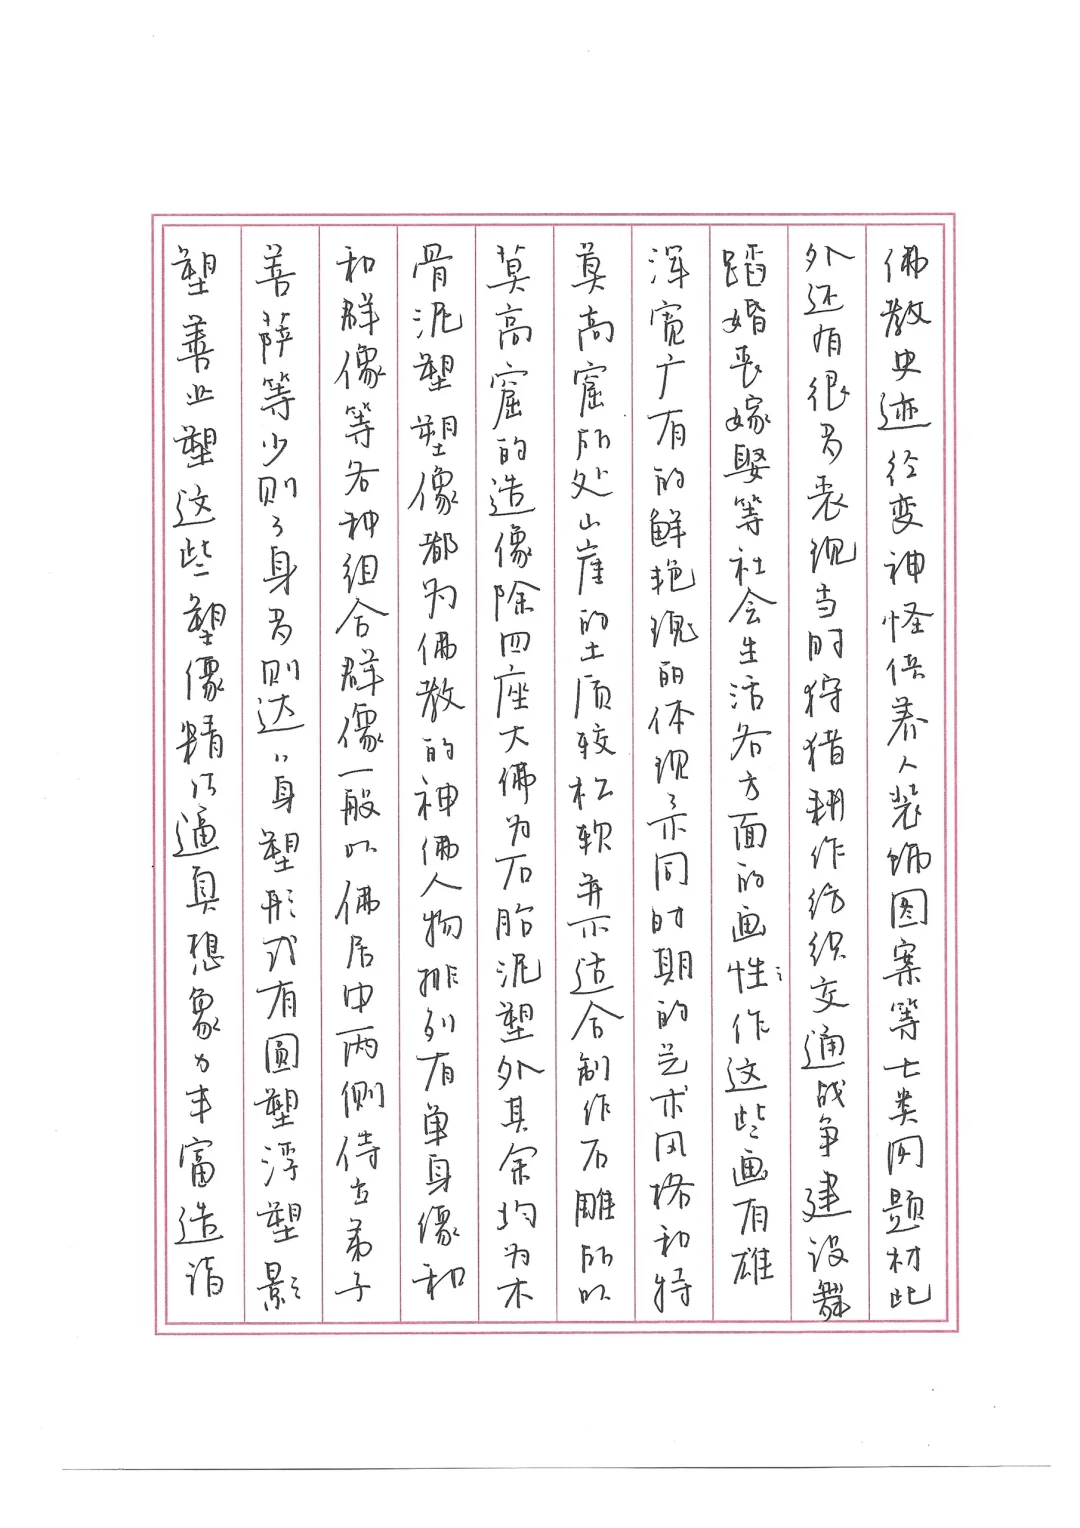 佛教史迹经变神怪供养人装饰图案等七类网题材此
外还有很多表现当时狩猎耕作纺织交通战争建设舞
蹈婚丧嫁娶等社会生活各方面的画性作这些画有雄
浑宽广有的鲜艳瑰丽体现不同时期的艺术风格和特
莫高窟所处山崖的土质较松软并不适合制作石雕所以
莫高窟的造像除四座大佛为石胎泥塑外其余均为木
骨泥塑塑像都为佛教的神佛人物排列有单身像和
和群像等各种组合群像一般以佛居中两侧侍立弟子
菩萨等少则3身多则达11身塑形式有圆塑浮塑影
塑善业塑这些塑像精巧逼真想象力丰富造诣